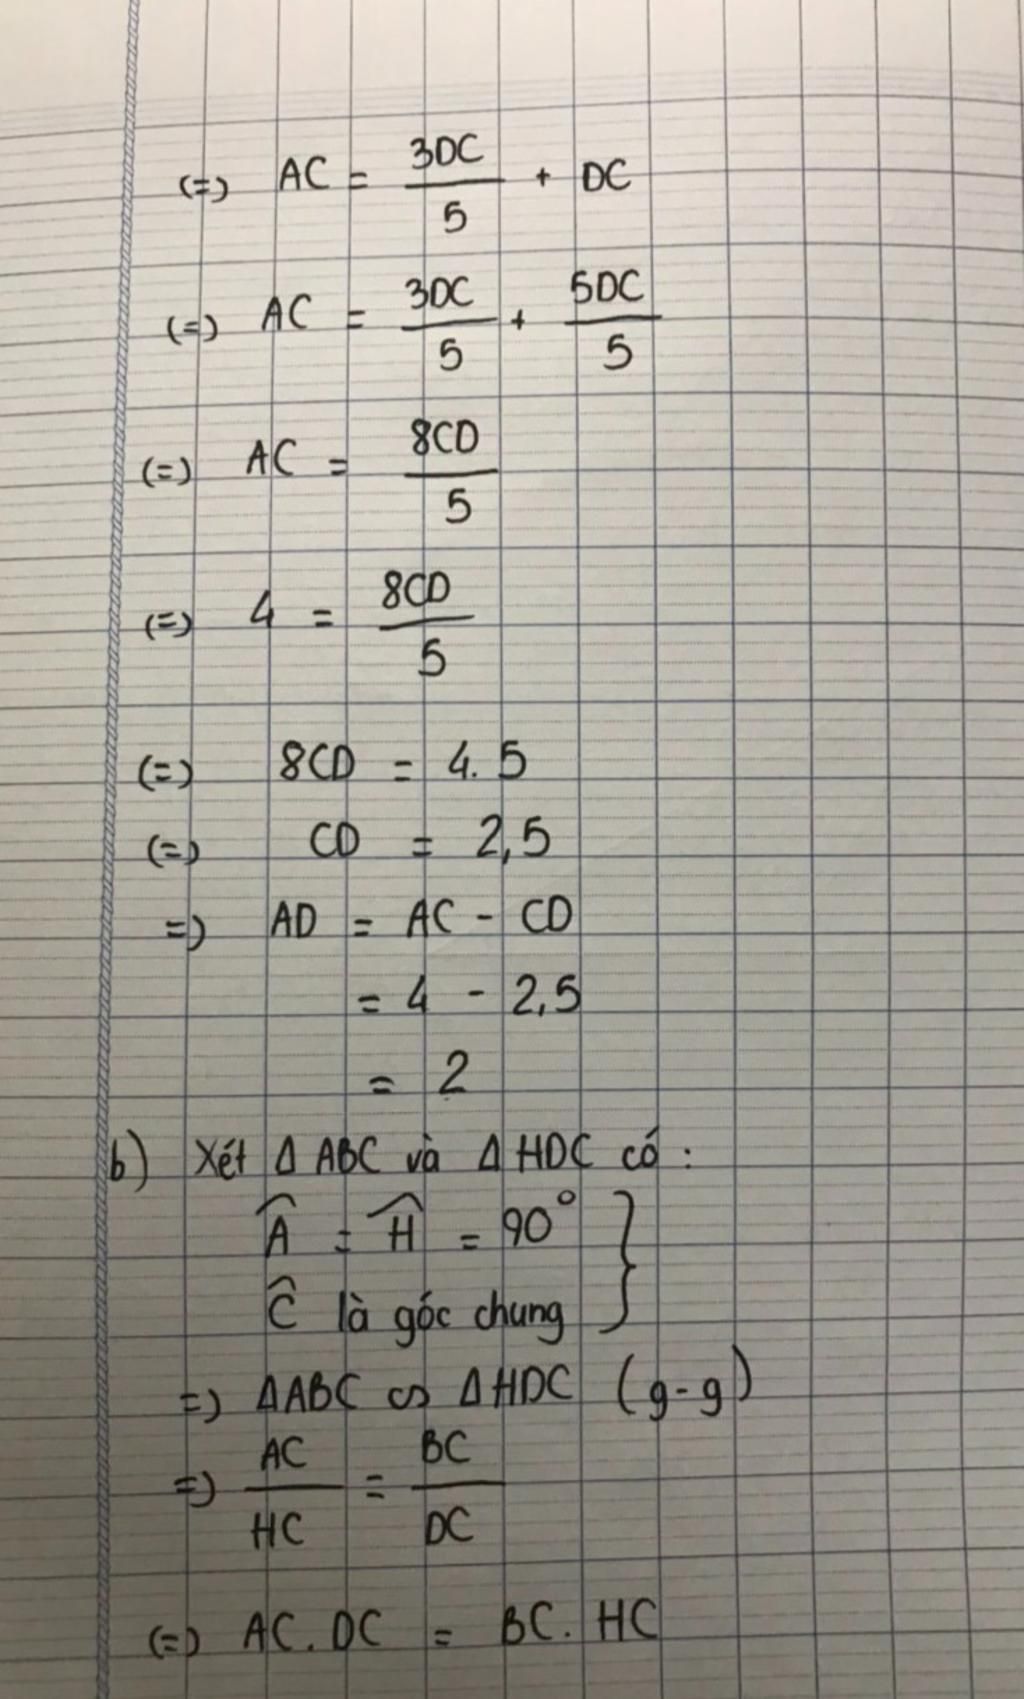 (=) AC = 3DC/5 + DC
(=) AC = 3DC/5 + 5DC/5
(=) AC = 8CD/5
(=) 4 = 8CD/5
(=) 8CD = 4.5
(=) CD = 2,5
=) AD = AC - CD
= 4 - 2,5
= 2
b) Xét Δ ABC và Δ HDC có :
Â = Ĥ = 90° }
Ĉ là góc chung
=) ΔABC ∽ ΔHDC (g-g)
=) AC/HC = BC/DC
(=) AC.DC = BC. HC